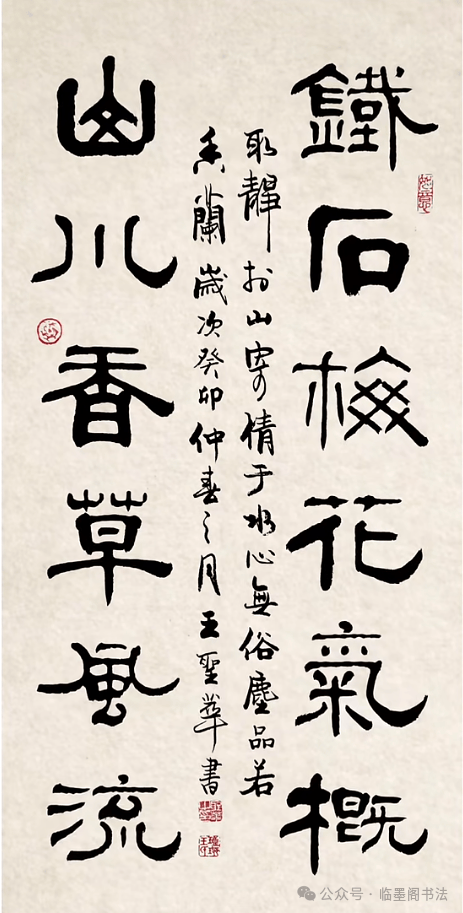 鐵石梅花氣概
取靜於山寄情于水心無俗塵品若
香蘭歲次癸卯仲春之月王聖華書
山川香草風流
公众号 · 临墨阁书法